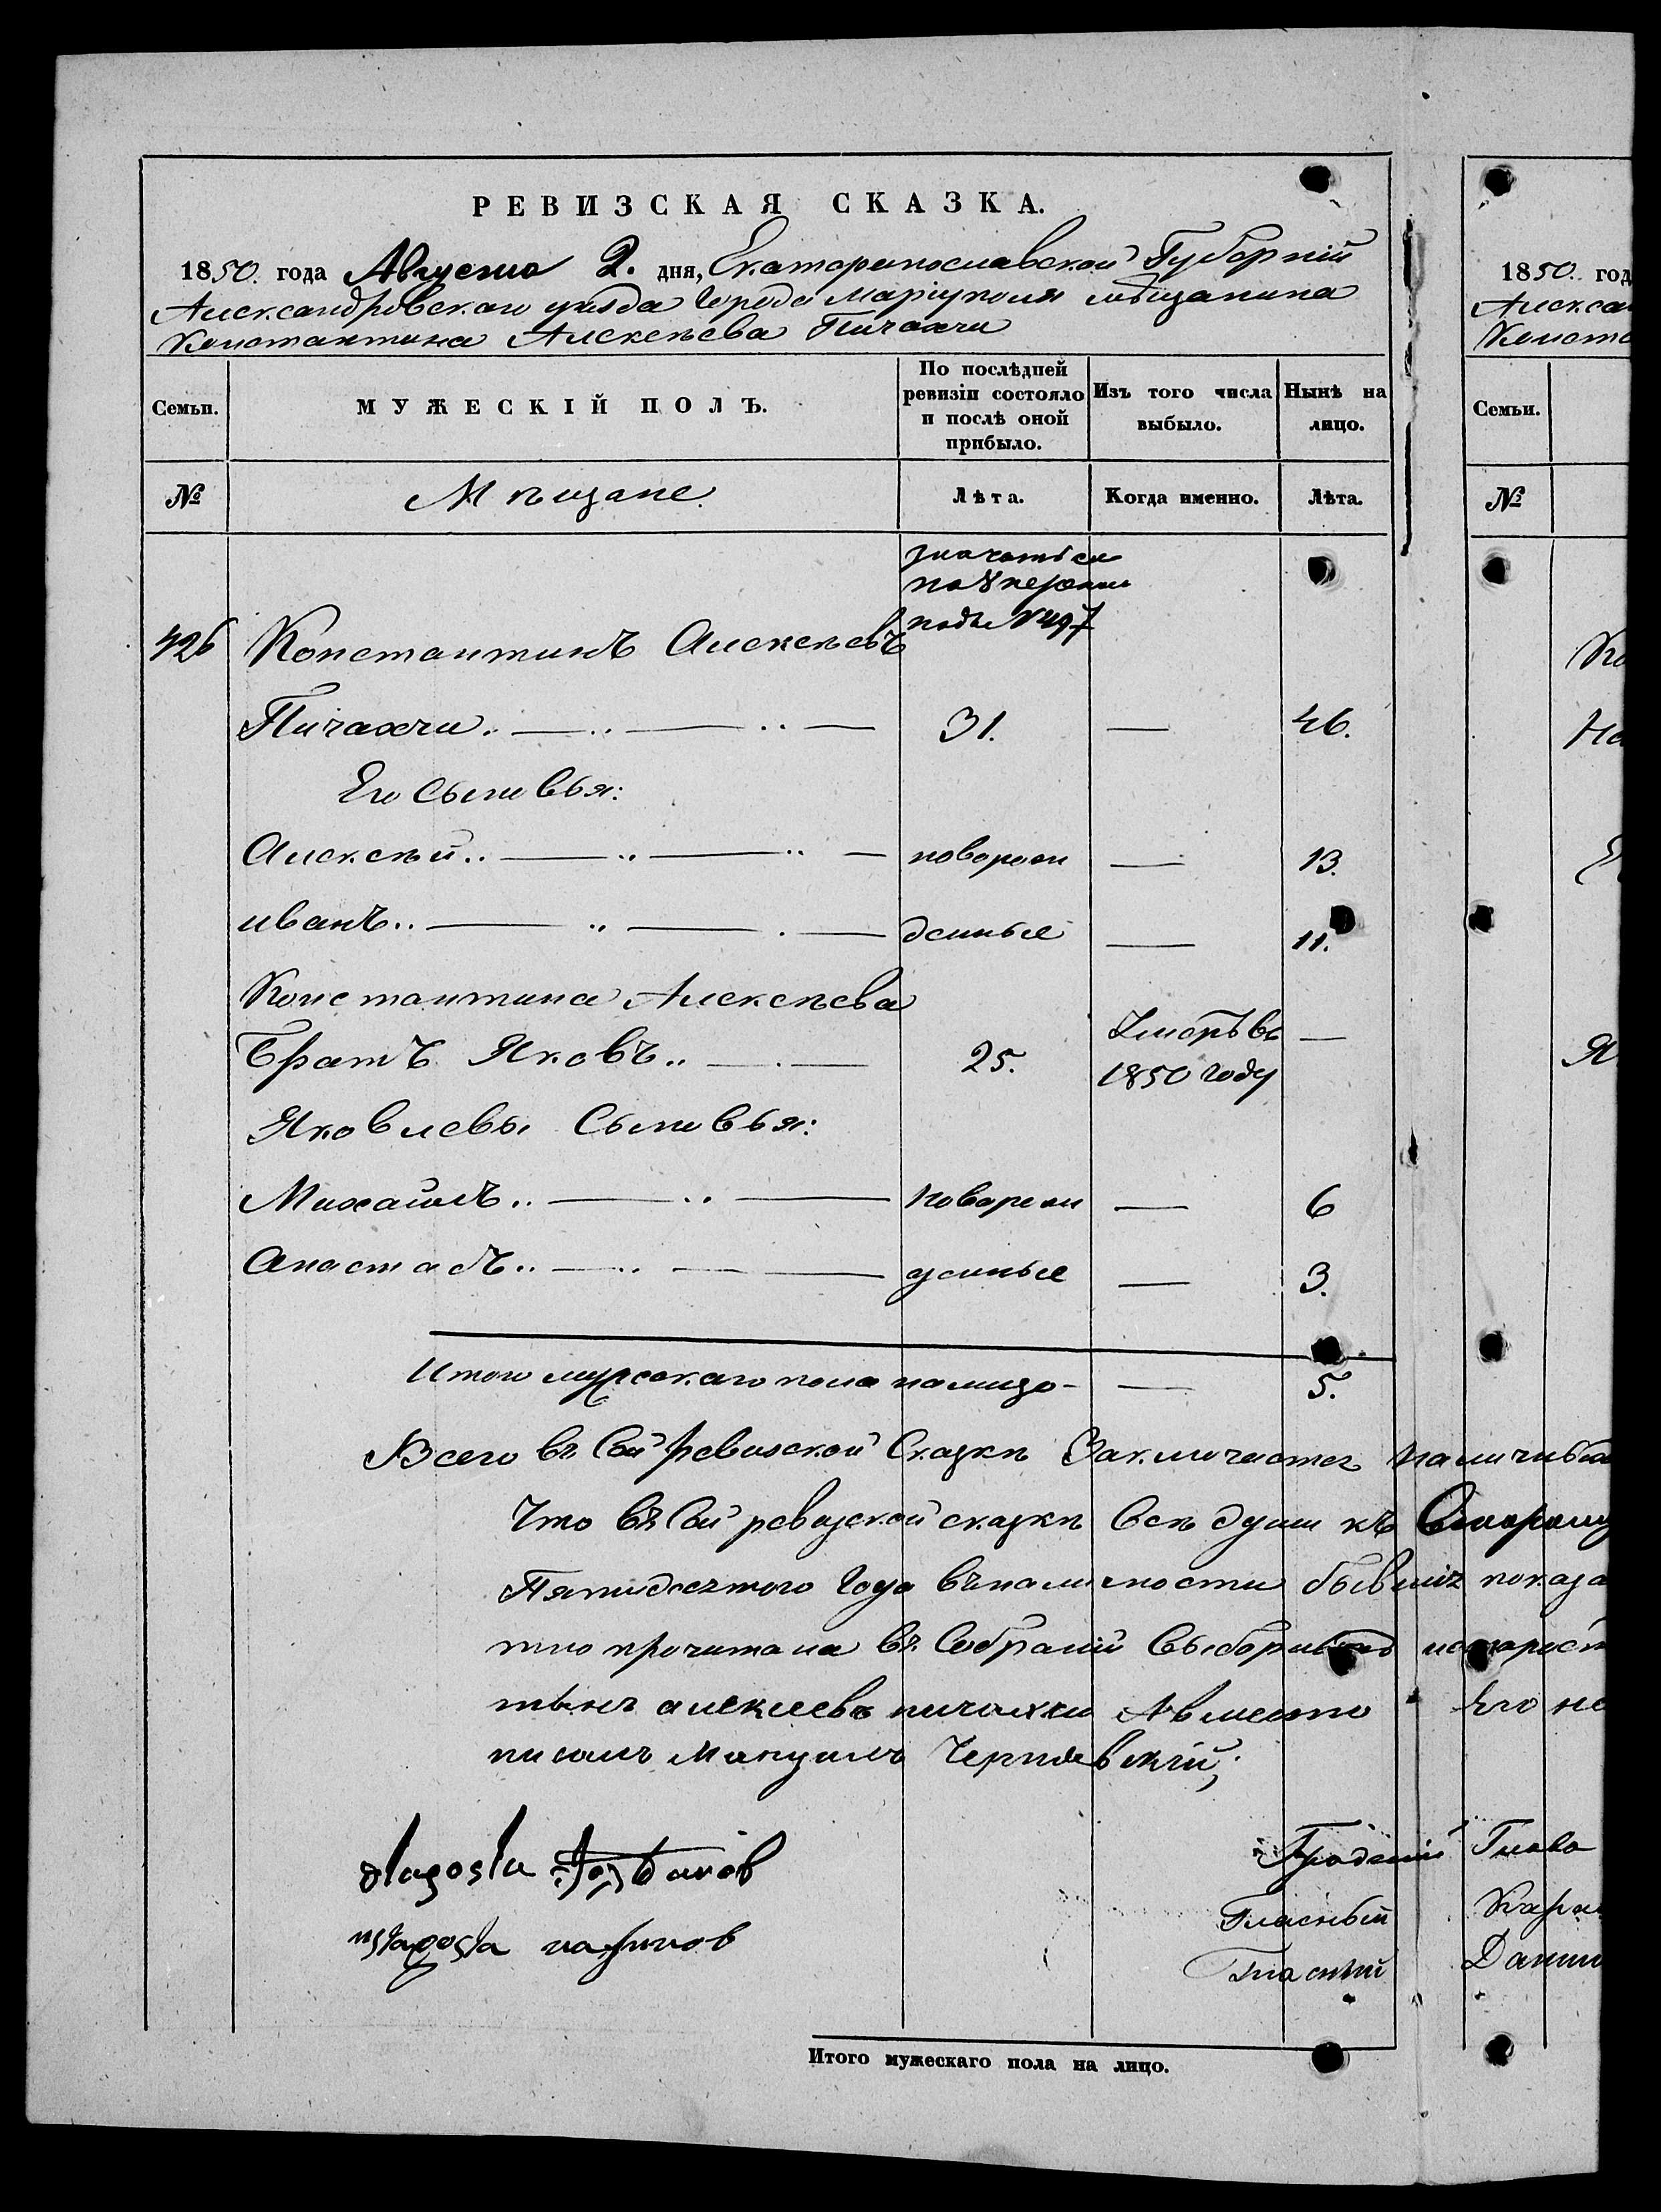 РЕВИЗСКАЯ СКАЗКА.
1850. года Августа 2. дня, Екатеринославской Губерній
Александровскаго уѣзда Города Маріуполя мѣщанина
Константина Алексѣева Пичахчи
Семьи. МУЖЕСКІЙ ПОЛЪ. По послѣдней ревизіи состояло и послѣ оной прибыло. Изъ того числа выбыло. Нынѣ на лицо.
№ Мѣщане. Лѣта. Когда именно. Лѣта.
значатся
по 8 ревизии
подъ №497
426 Константинъ Алексѣевъ
Пичахчи. 31. — 46.
Его Сыновья:
Алексѣй.. новорож — 13.
иванъ.. денные — 11.
Константина Алексѣева
Братъ Яковъ.. 25. Умеръ въ 1850 году —
Яковлевы Сыновья:
Михаилъ.. новорож — 6
Анастасъ.. денные — 3.
Итого мужескаго пола налицо — 5.
Всего въ Сей ревизской Сказкѣ Заключается наличныхъ
Что въ Сей ревизской сказкѣ Всѣ души къ Второму
Пятидесятого Года въ наличности бывшіе показа
тно прочитана въ Собраніи Выборныхъ истарост
тинъ алексеевъ пичахчи Авместо Его не
писалъ Мануилъ Чернявскій;
Градский Глава
Гласный Кара
Гласный Дании
Итого мужескаго пола на лицо.
1850. год
Алекса
Конста
Семьи.
№
Ко
На
Е
Я